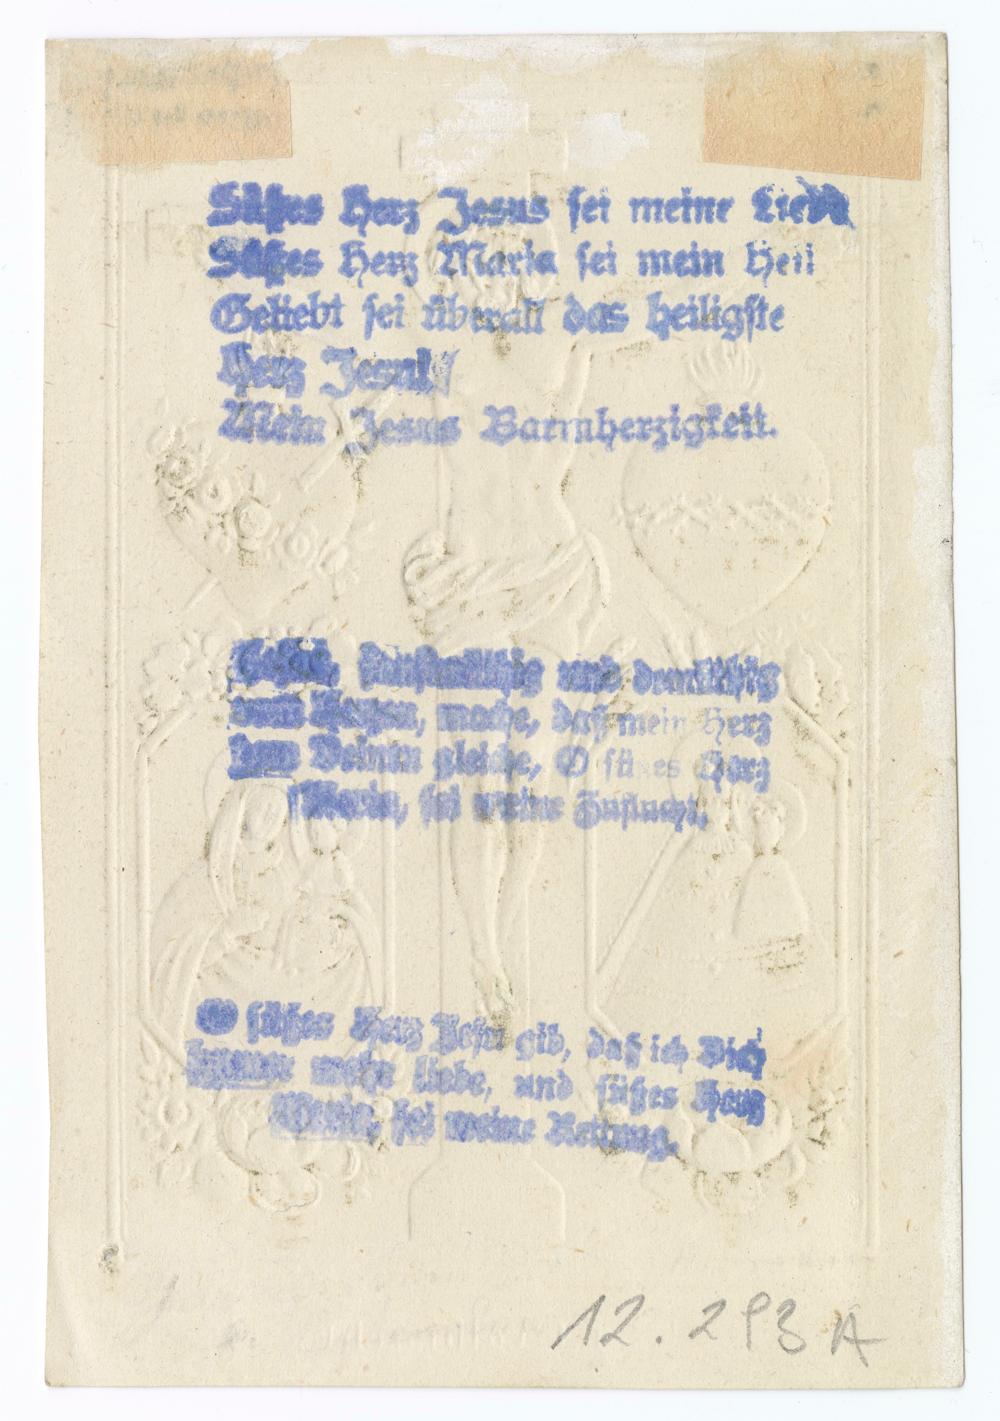 Süßes Herz Jesus sei meine Liebe
Süßes Herz Maria sei mein Heil
Geliebt sei überall das heiligste
Herz Jesu!
Mein Jesus Barmherzigkeit.
sanftmüthig und demüthig
vom Herzen, mache, daß mein Herz
dem Deinen gleiche, O süßes Herz
Maria, sei meine Zuflucht.
O süßes Herz Jesu gib, daß ich Dich
immer mehr liebe, und süßes Herz
Maria, sei meine Rettung.
12.293 A